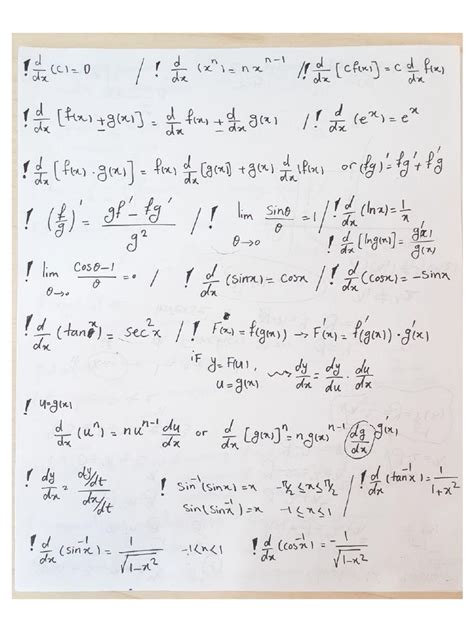 ! d/dx (c) = 0 / ! d/dx (xⁿ) = n xⁿ⁻¹ / ! d/dx [c f(x)] = c d/dx f(x)
! d/dx [f(x) ± g(x)] = d/dx f(x) ± d/dx g(x) / ! d/dx (eˣ) = eˣ
! d/dx [f(x) · g(x)] = f(x) d/dx [g(x)] + g(x) d/dx (f(x) or (fg)' = fg' + f'g
! (f/g)' = gf' − fg' / g² / ! lim θ→0 sinθ/θ = 1 / ! d/dx (ln x) = 1/x
! d/dx [ln g(x)] = g'(x)/g(x)
! lim θ→0 cosθ−1/θ = 0 / ! d/dx (sinx) = cosx / ! d/dx (cosx) = −sinx
! d/dx (tan x) = sec²x / ! F(x) = f(g(x)) → F'(x) = f'(g(x)) · g'(x)
if y = F(u), u = g(x) ⇝ dy/dx = dy/du · du/dx
! u = g(x)
d/dx (uⁿ) = n uⁿ⁻¹ du/dx or d/dx [g(x)]ⁿ = n g(x)ⁿ⁻¹ dg/dx g'(x)
! dy/dx = dy/dt / dx/dt ! sin⁻¹(sinx) = x −π/2 ≤ x ≤ π/2 / ! d/dx (tan⁻¹x) = 1/1+x²
sin(sin⁻¹x) = x −1 ≤ x ≤ 1
! d/dx (sin⁻¹x) = 1/√1−x² −1<x<1 ! d/dx (cos⁻¹x) = −1/√1−x²